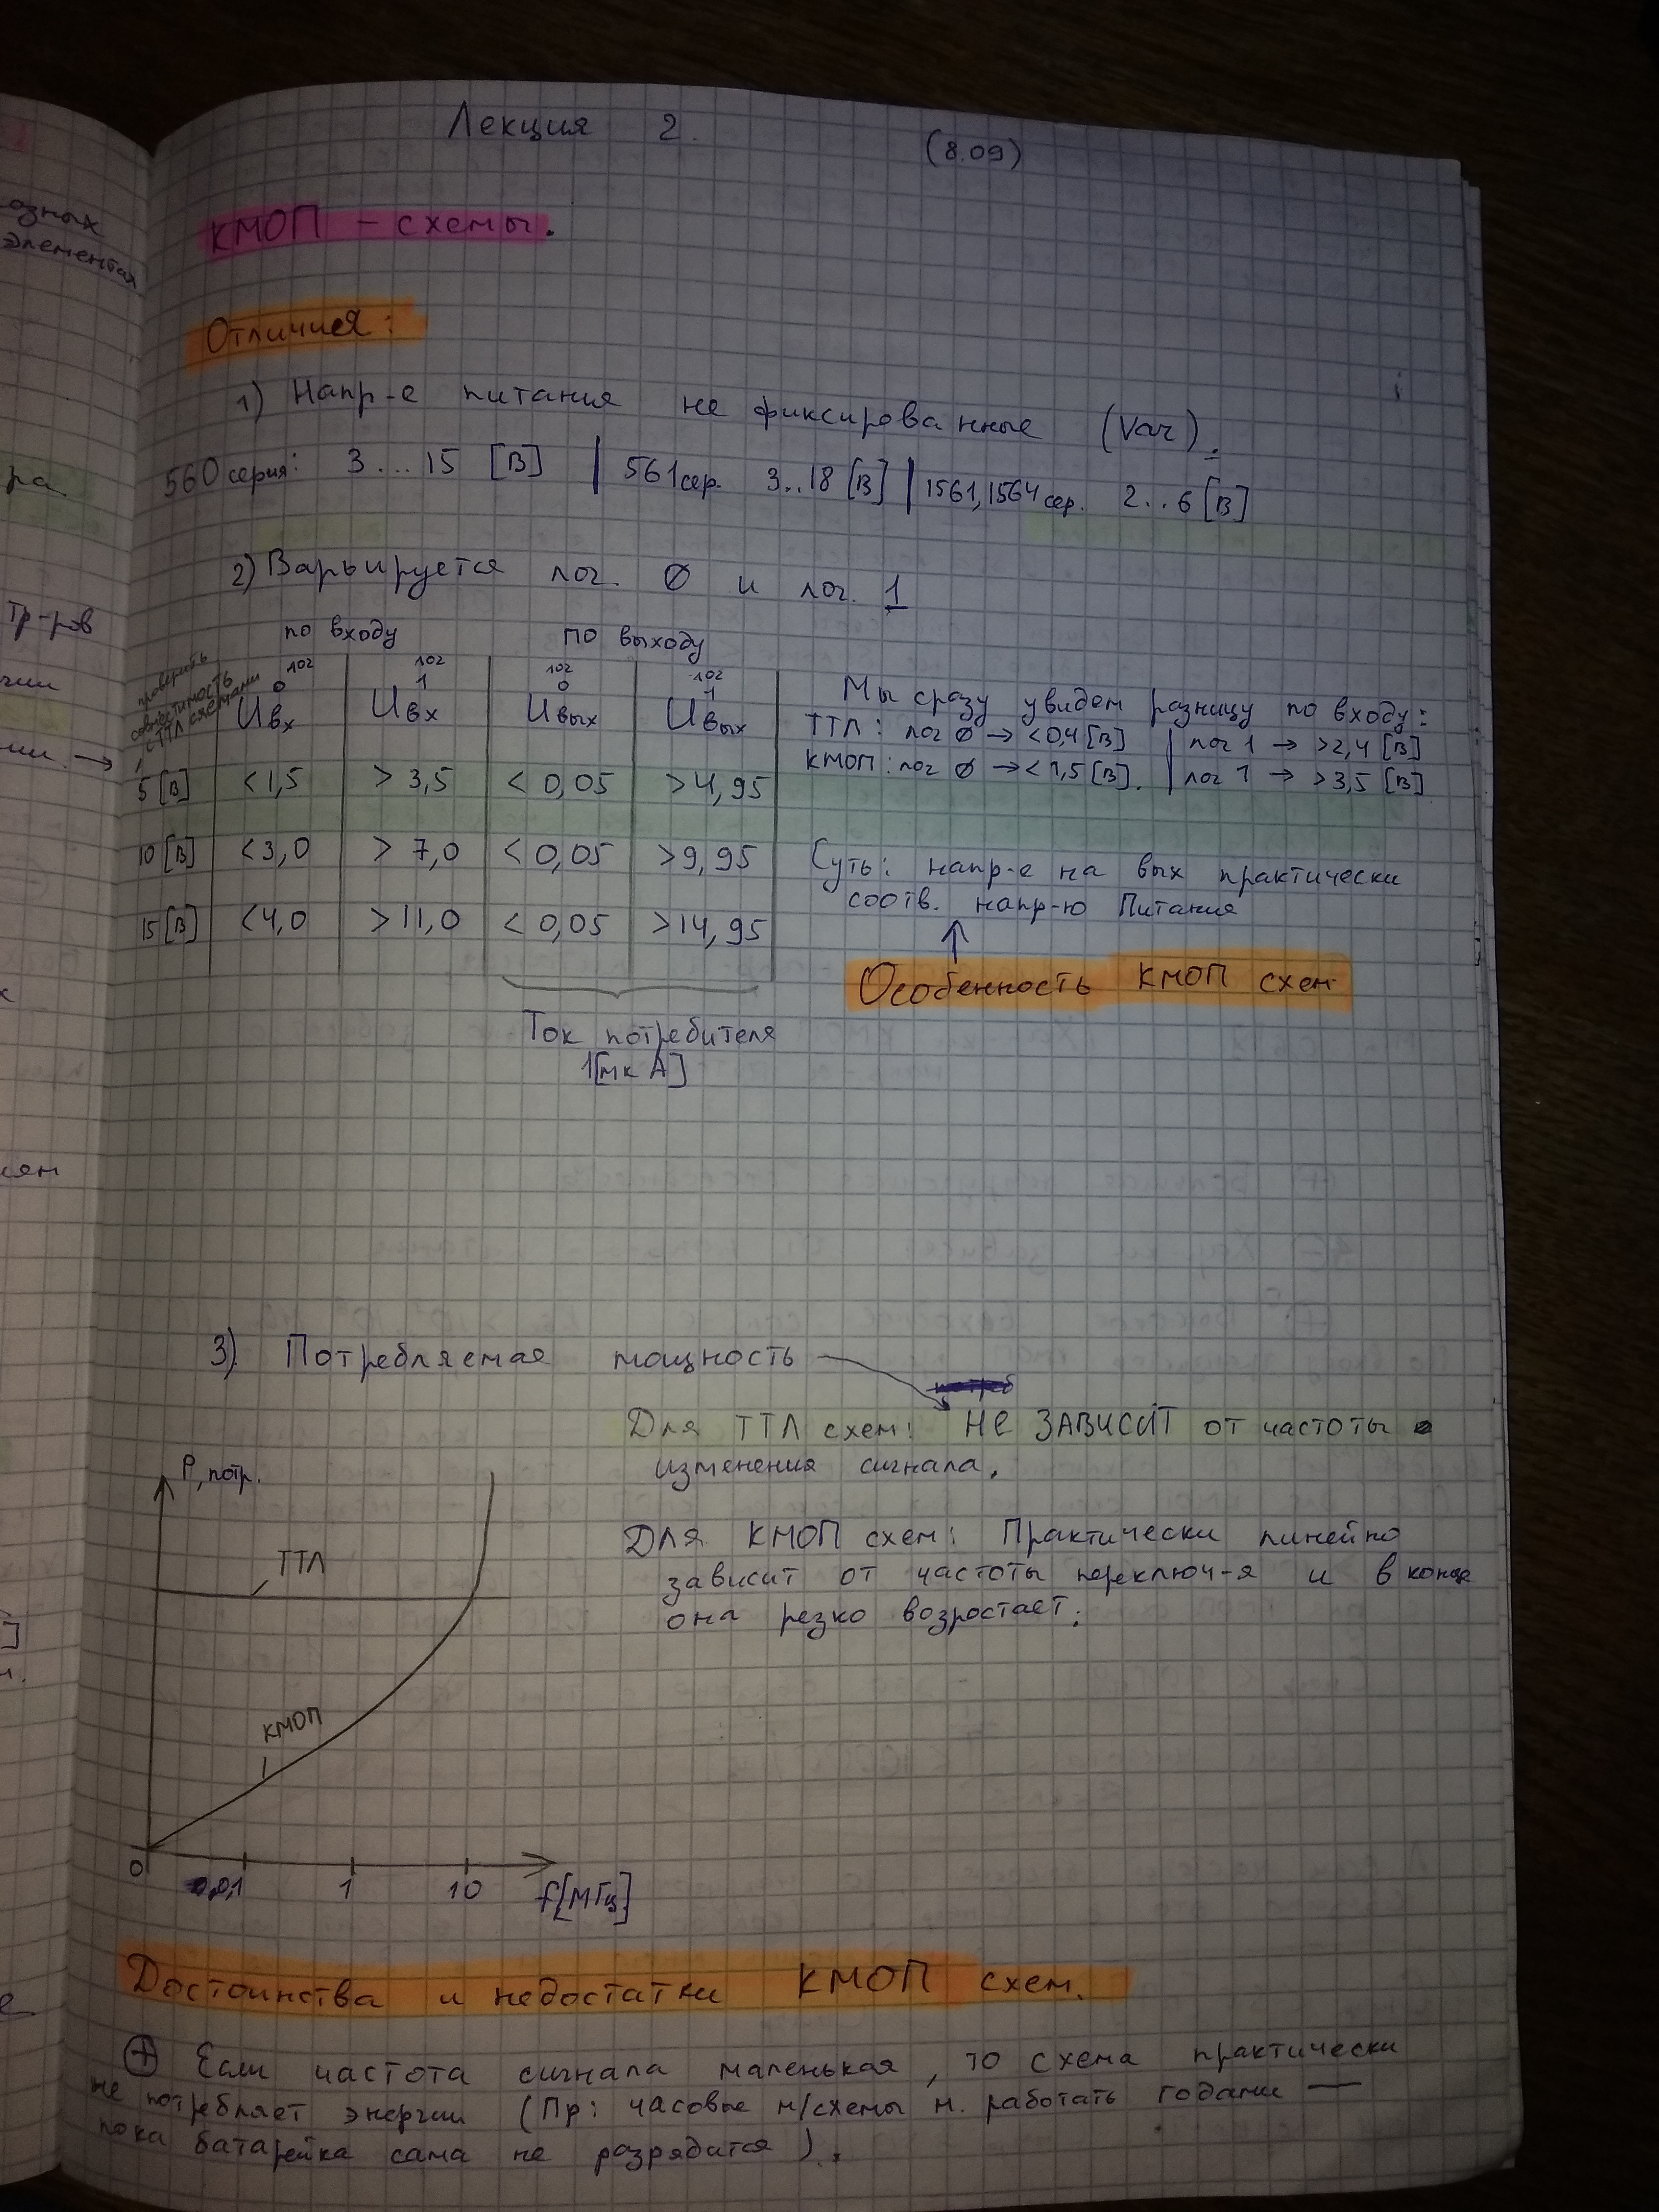 Лекция 2.
(8.09)
КМОП – схемы.
Отличия:
1) Напр-е питания не фиксированные (Var).
560 серия: 3...15 [В] | 561 сер. 3..18 [В] | 1561, 1564 сер. 2..6 [В]
2) Варьируется лог. 0 и лог. 1
по входу по выходу
проверить
совместимость
с ТТЛ схемами
лог 0 Uвх | лог 1 Uвх | лог 0 Uвых | лог 1 Uвых
5 [В] | <1,5 | > 3,5 | < 0,05 | >4,95
10 [В] | <3,0 | > 7,0 | < 0,05 | >9,95
15 [В] | <4,0 | >11,0 | < 0,05 | >14,95
Ток потребителя
1[мкА]
Мы сразу увидем разницу по входу:
ТТЛ: лог 0 → <0,4 [В] | лог 1 → >2,4 [В]
КМОП: лог 0 → <1,5 [В]. | лог 1 → >3,5 [В]
Суть: напр-е на вых практически
соотв. напр-ю Питания
Особенность КМОП схем
3) Потребляемая мощность
Для ТТЛ схем: НЕ ЗАВИСИТ от частоты
изменения сигнала.
Для КМОП схем: Практически линейно
зависит от частоты переключ-я и в конце
она резко возростает.
P, потр.
ТТЛ
КМОП
0 0,1 1 10 f[МГц]
Достоинства и недостатки КМОП схем.
⊕ Если частота сигнала маленькая, то схема практически
не потребляет энергии (Пр: часовые м/схемы м. работать годами —
пока батарейка сама не разрядится).
озных
элементах
ра.
Тр-ров